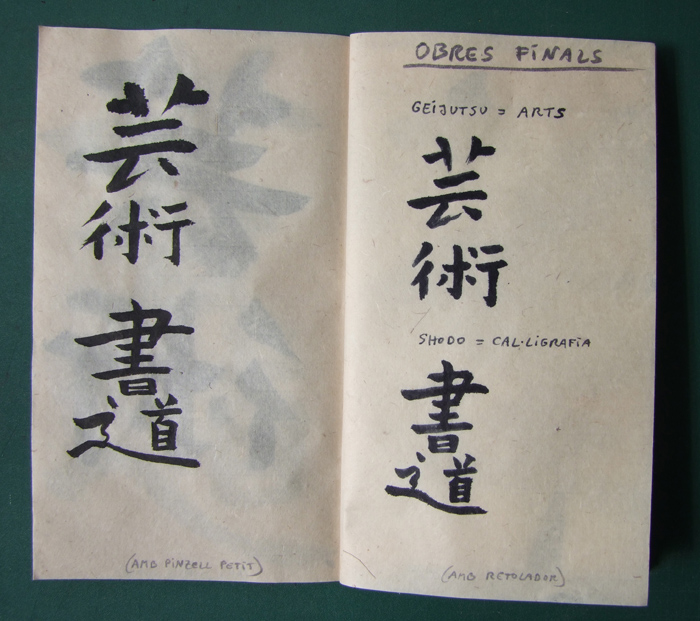 芸
術
書
道
(AMB PINZELL PETIT)
OBRES FINALS
GEIJUTSU = ARTS
芸
術
SHODO = CAL·LIGRAFIA
書
道
(AMB RETOLADOR)